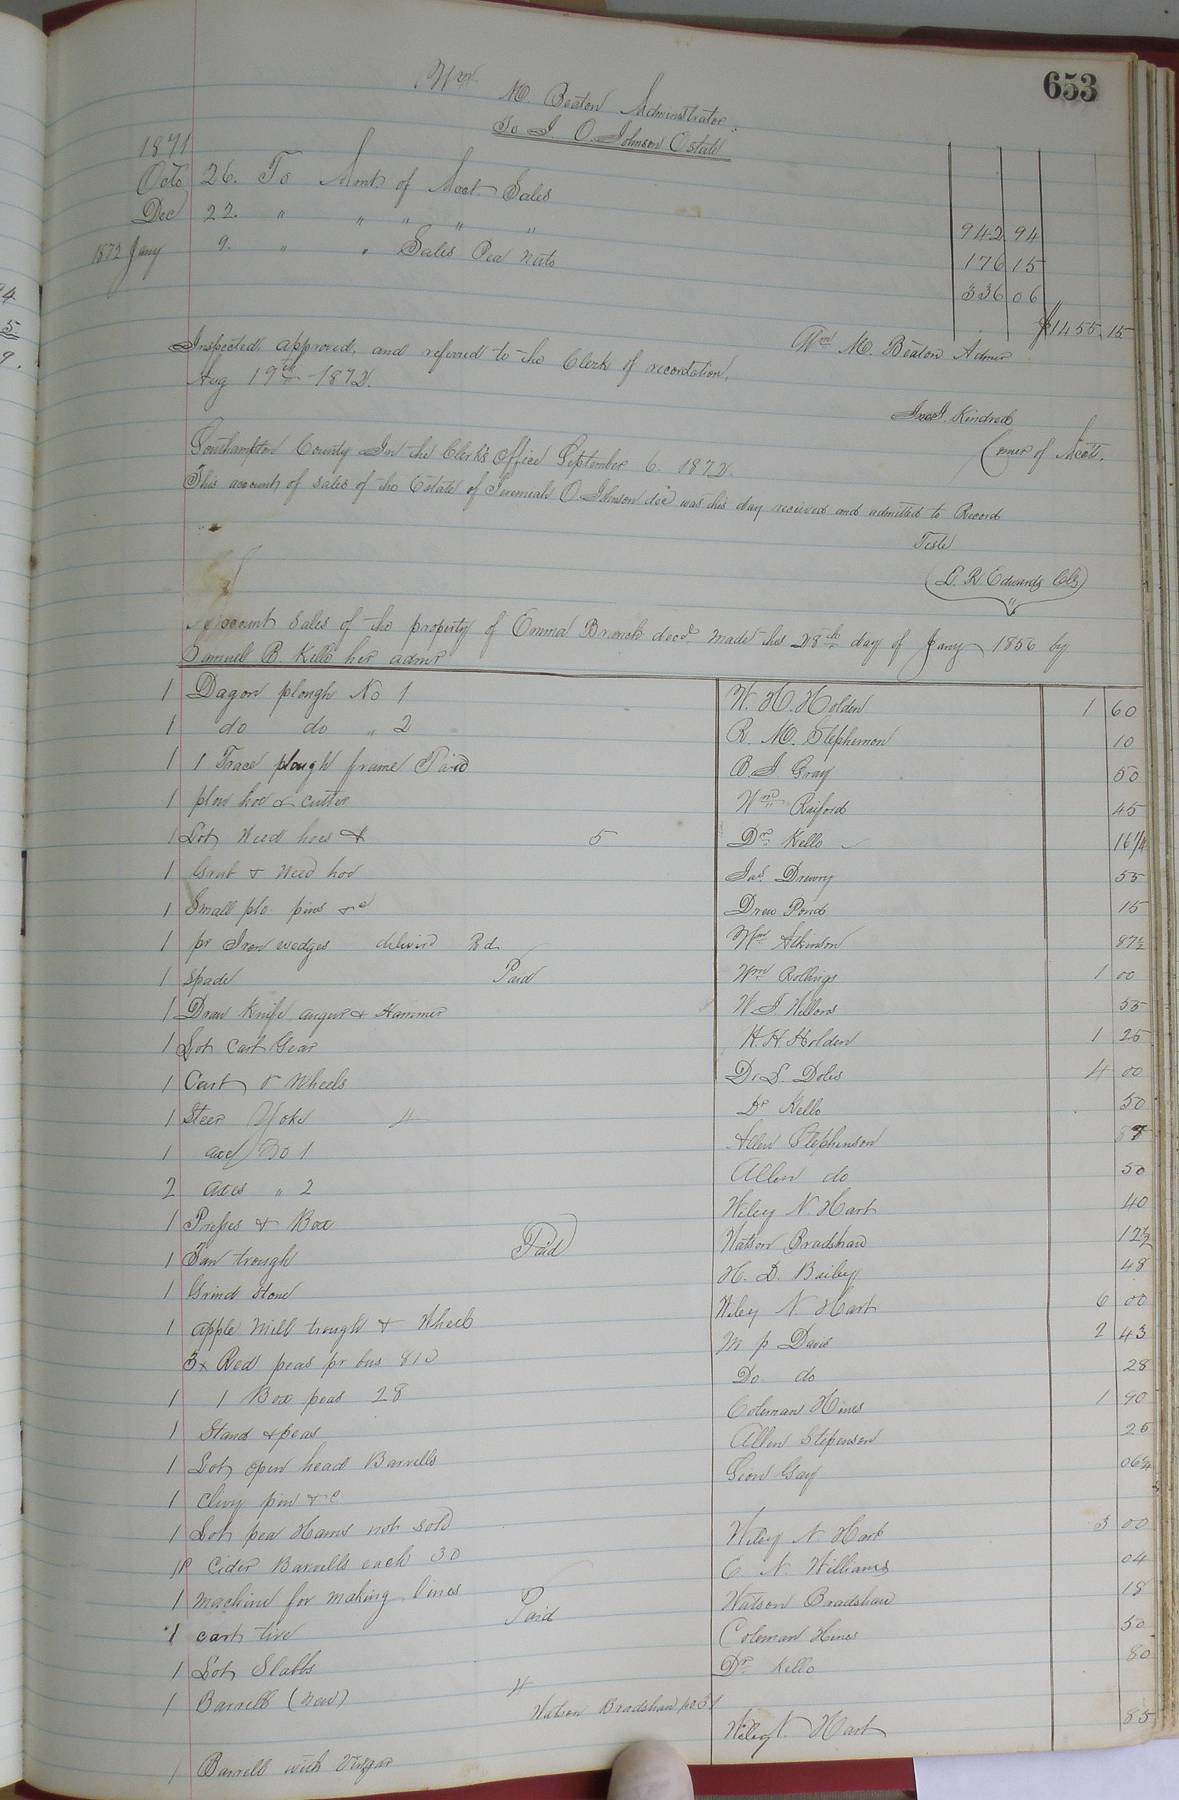 653
Wm
M. Beaton Administrator
To J. O. Johnson Estate
1871
Octo 26. To Amt of Acct Sales 942 94
Dec 22. " " " " " 176 15
1872 Jany 9. " " Sales Pea nuts 336 06
$1455.15
Wm M. Beaton Admr
Inspected, approved, and referred to the Clerk of recordation,
Aug 19th 1872.
Kindred
Comr of Acctts.
Southampton County In the Clerk's Office September 6. 1872
This account of sales of the Estate of Jeremiah O Johnson decd was this day received and admitted to Record
Teste
L. R. Edwards Clk
Account Sales of the property of Emma Branch decd. made this 28th day of Jany 1856 by
Samuel B Kello her admr
1 Dagon plough No 1 W. H. Holden 1 60
1 do do " 2 R. M. Stephenson 10
1 1 Trace plough frame Paid B J Gray 50
1 plow hoe & cutter Wm Raiford 45
1 Lot Weed hoes & 5 Dr Kello 16 1/4
1 Grub & Weed hoe Jas. Drewry 55
1 Small plo. pins &c Drew Pond 15
1 pr Iron wedges delivrd Rd Wm Atkinson 87½
1 Spade Paid Wm Rollings 1 00
1 Draw Knife augur & Hammer W J Vellons 55
1 Lot Cart Gear H. H Holden 1 25
1 Cart & Wheels D. S. Doles 4 00
1 Steer Yoke 4 Dr Kello 50
1 axe No 1 Allen Stephenson 87
2 axes " 2 Allen do 50
1 Presses & Box Wiley N Hart 40
1 Fan trough Paid Watson Bradshaw 12½
1 Grind Stone H. D. Bailey 48
1 apple Mill trough & Wheels Wiley N Hart 6 00
3x Red peas pr bus 81c M p Davis 2 43
1 1 Box peas 28 Do do 28
1 Stand & peas Coleman Hines 1 90
1 Lot open head Barrells Allen Stepenson 25
1 Clevy pin &c Geow Gay 06¼
1 Lot pea Hams not sold
10 Cider Barrells each 30 Wiley N. Hart 3 00
1 machine for making lines C. N. Williams 04
1 cart tire Paid Watson Bradshaw 18
1 Lot Slabbs Coleman Hines 50
1 Barrell (new) 4 Dr Kello 80
Watson Bradshaw
1 Barrell with Vingar Wiley N. Hart 85